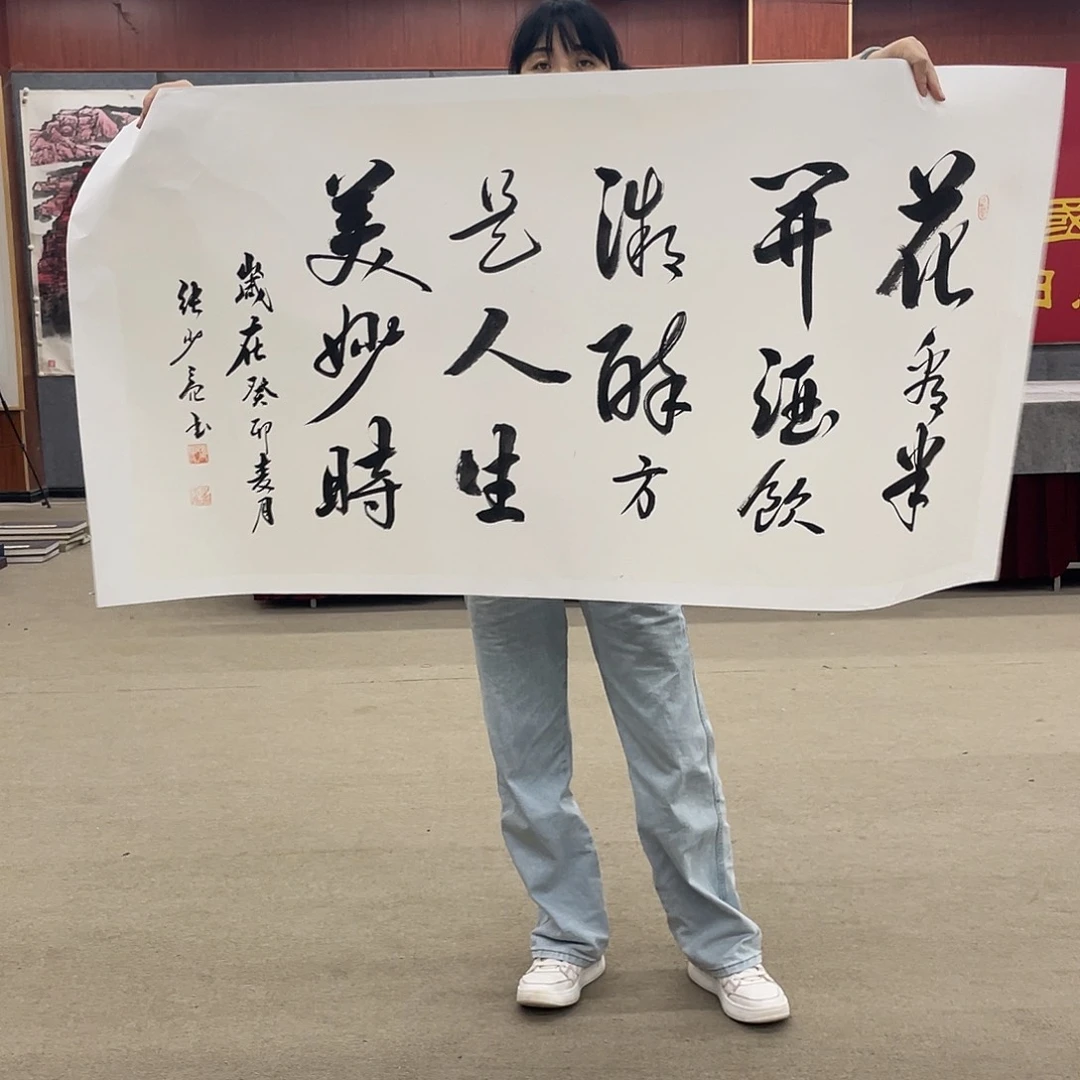 花看半
開酒飲
微醉方
是人生
美妙時
歲在癸卯夏月
張少亮书
國